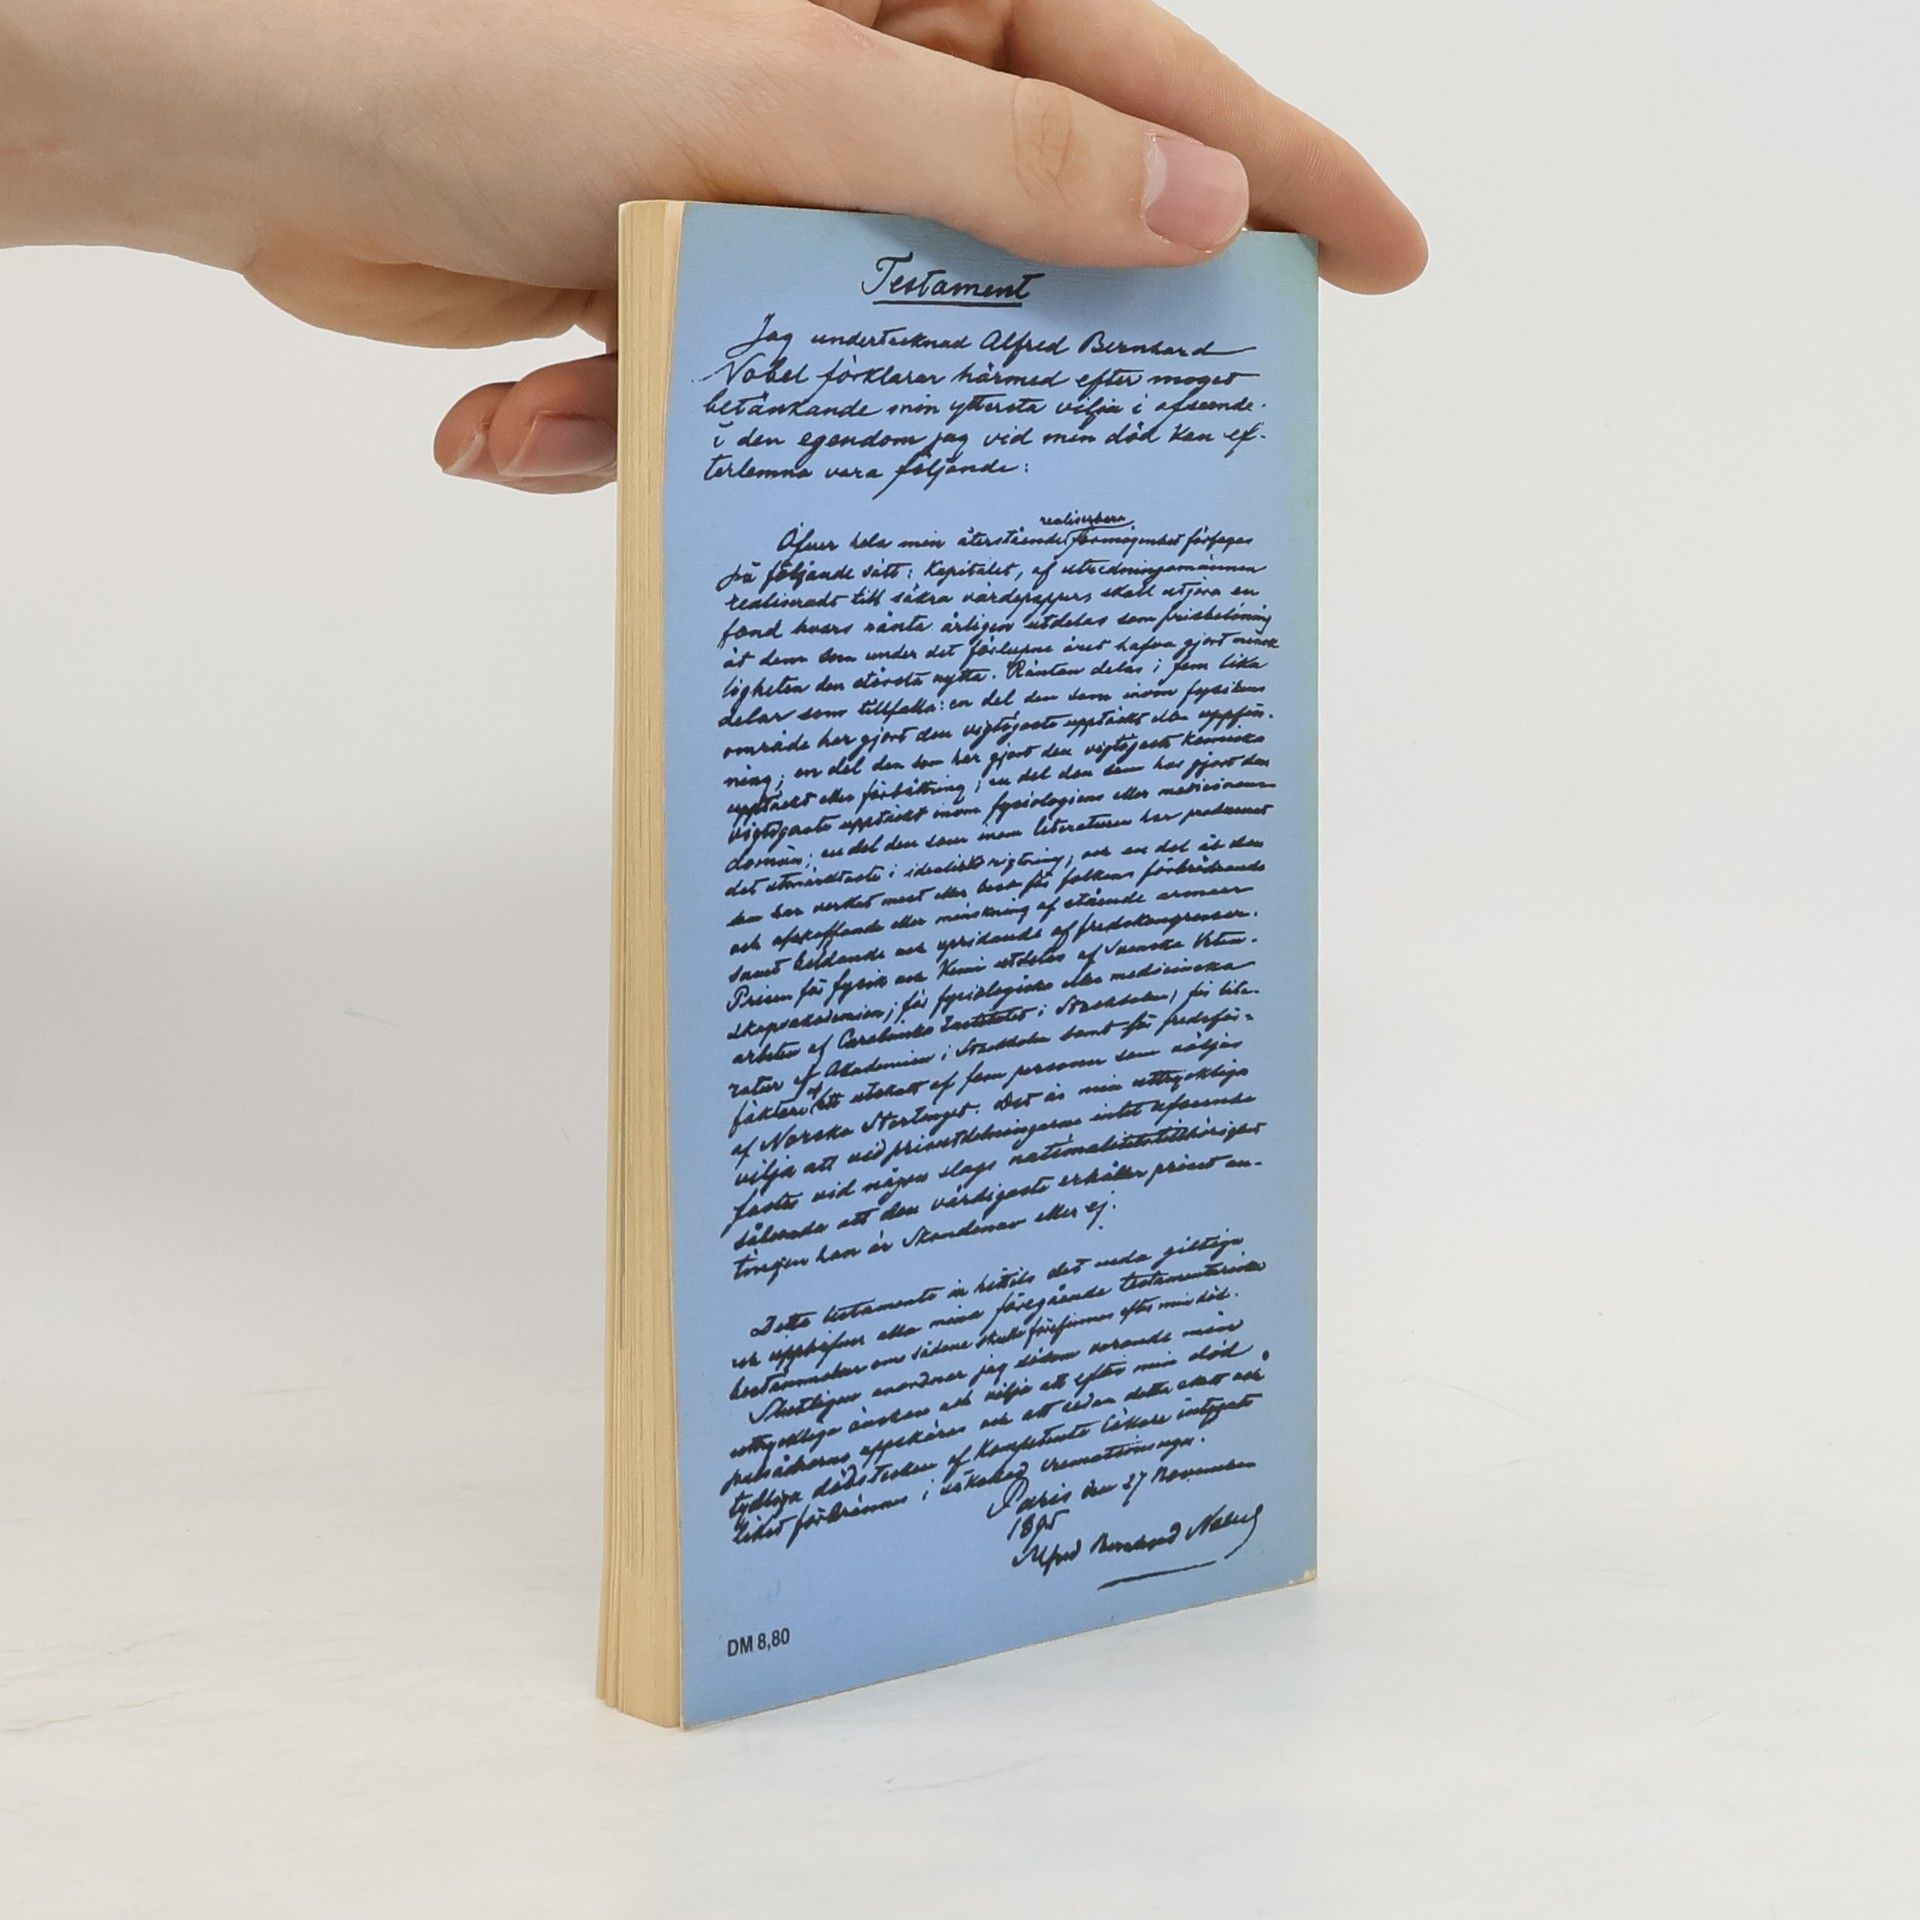 Testament
Jag undertecknad Alfred Bernhard
Nobel förklarar härmed efter moget
betänkande min yttersta vilja i afseende
å den egendom jag vid min död kan ef-
terlemna vara följande:
realiserbara
Öfver hela min återstående förmögenhet förfoges
på följande sätt: Kapitalet, af utredningsmännen
realiseradt till säkra värdepapper, skall utgöra en
fond hvars ränta årligen utdelas som prisbelöning
åt dem som under det förlupne året hafva gjort mensk
ligheten den största nytta. Räntan delas i fem lika
delar som tillfalla: en del den som inom fysikens
område har gjort den vigtigaste upptäckt eller uppfin-
ning; en del den som har gjort den vigtigaste kemiska
upptäckt eller förbättring; en del den som har gjort den
vigtigaste upptäckt inom fysiologiens eller medicinens
domän; en del den som inom literaturen har producerat
det utmärktaste i idealisk rigtning; och en del åt den
som har verkat mest eller best för folkens förbrödrande
och afskaffande eller minskning af stående armeer
samt bildande och spridande af fredskongresser.
Prisen för fysik och kemi utdelas af Svenska Veten-
skapsakademien; för fysiologiska eller medicinska
arbeten af Carolinska Institutet i Stockholm; för lite-
ratur af Akademien i Stockholm samt för fredsför-
fäktare af ett utskott af fem personer som väljas
af Norska Stortinget. Det är min uttryckliga
vilja att vid prisutdelningarne intet afseende
fästes vid någon slags nationalitetstillhörighet
sålunda att den värdigaste erhåller priset an-
tingen han är Skandinav eller ej.
Detta testamente är hittills det enda giltiga
och upphäfver alla mina föregående testamentariska
bestämmelser om sådana skulle förefinnas efter min död.
Slutligen anordnar jag såsom varande min
uttryckliga önskan och vilja att efter min död
pulsådrorna uppskäras och att sedan detta skett och
tydliga dödstecken af kompetente läkare intygats
liket förbrännes i såkallad cremationsugn.
Paris den 27 November
1895
Alfred Bernhard Nobel
DM 8,80